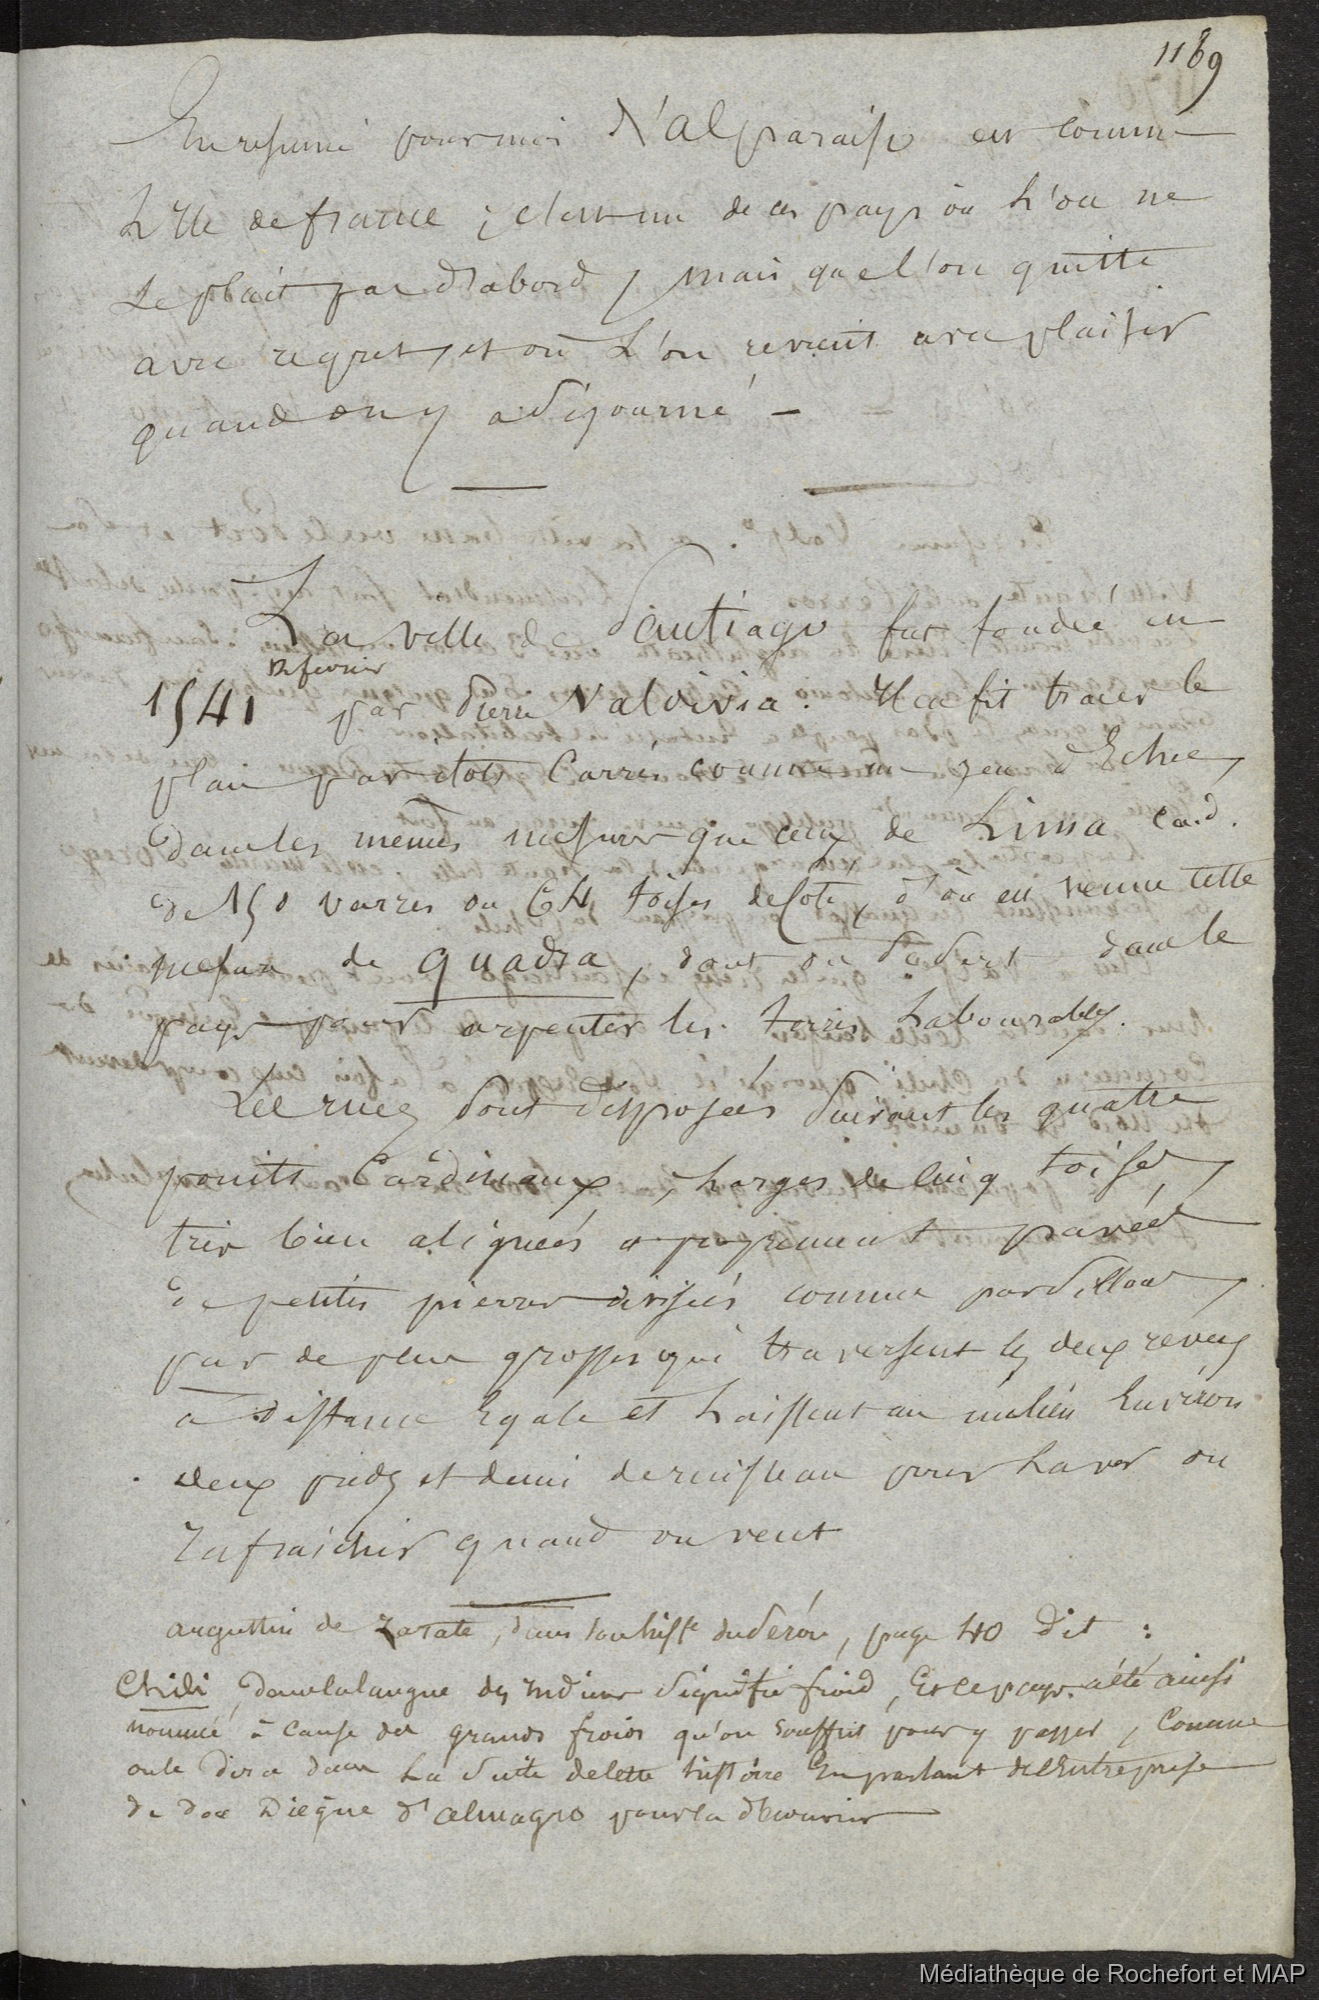 1189
En resumé pour moi Valparaiso est comme
L'Ile de france ; c'est un de ces pays où L'on ne
se plait pas d'abord, mais que l'on quitte
avec regret, et où L'on revient avec plaisir
quand on y a séjourné —
La ville de Santiago fut fondée en
12 fevrier
1541 par Pierre Valdivia. Il en fit tracer le
plan par ilots Carrés comme un jeu d'Echec,
dans les memes mesures que ceux de Lima c.a.d.
de 150 varres ou 64 toises de Coté, d'où est venue cette
mesure de quadra, dont on se sert dans le
pays pour arpenter les terres Labourables.
Les rues sont disposées suivant les quatre
points Cardinaux, Larges de cinq toises,
très bien alignées et proprement pavées
de petites pierres divisées comme par sillons,
par de plus grosses qui traversent les deux revers
a distance Egale et Laissent au milieu Environ
deux pieds et demi de ruisseau pour Laver ou
rafraichir quand on veut
augustin de Zarate, dans son hist.e du Pérou, page 40 Dit :
Chili, dans la langue des indiens signifie froid, Et ce pays a été ainsi
nommé à cause des grands froids qu'on souffrit pour y passer, Comme
on le dira dans La suite de cette histoire En parlant de l'Entreprise
de don Diegue d'almagro pour la découvrir
Médiathèque de Rochefort et MAP